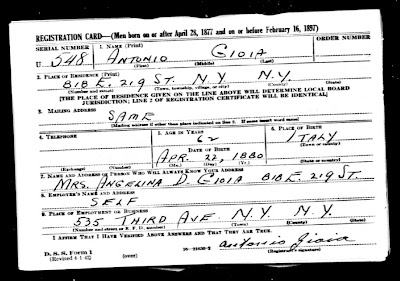 REGISTRATION CARD—(Men born on or after April 28, 1877 and on or before February 16, 1897)
SERIAL NUMBER 1. NAME (Print) ORDER NUMBER
U 548 ANTONIO GIOIA
(First) (Middle) (Last)
2. PLACE OF RESIDENCE (Print)
818 E. 219 ST. N.Y. N.Y.
(Number and street) (Town, township, village, or city) (County) (State)
[THE PLACE OF RESIDENCE GIVEN ON THE LINE ABOVE WILL DETERMINE LOCAL BOARD
JURISDICTION; LINE 2 OF REGISTRATION CERTIFICATE WILL BE IDENTICAL]
3. MAILING ADDRESS
SAME
[Mailing address if other than place indicated on line 2. If same insert word same]
4. TELEPHONE 5. AGE IN YEARS 6. PLACE OF BIRTH
62 ITALY
DATE OF BIRTH (Town or county)
APR. 22, 1880
(Exchange) (Number) (Mo.) (Day) (Yr.) (State or country)
7. NAME AND ADDRESS OF PERSON WHO WILL ALWAYS KNOW YOUR ADDRESS
MRS. ANGELINA D. GIOIA 818 E. 219 ST.
8. EMPLOYER'S NAME AND ADDRESS
SELF
9. PLACE OF EMPLOYMENT OR BUSINESS
535 THIRD AVE N.Y. N.Y.
(Number and street or R. F. D. number) (Town) (County) (State)
I AFFIRM THAT I HAVE VERIFIED ABOVE ANSWERS AND THAT THEY ARE TRUE.
D. S. S. Form 1
(Revised 4-1-42) (over) 16—21630-2 antonio gioia
(Registrant's signature)